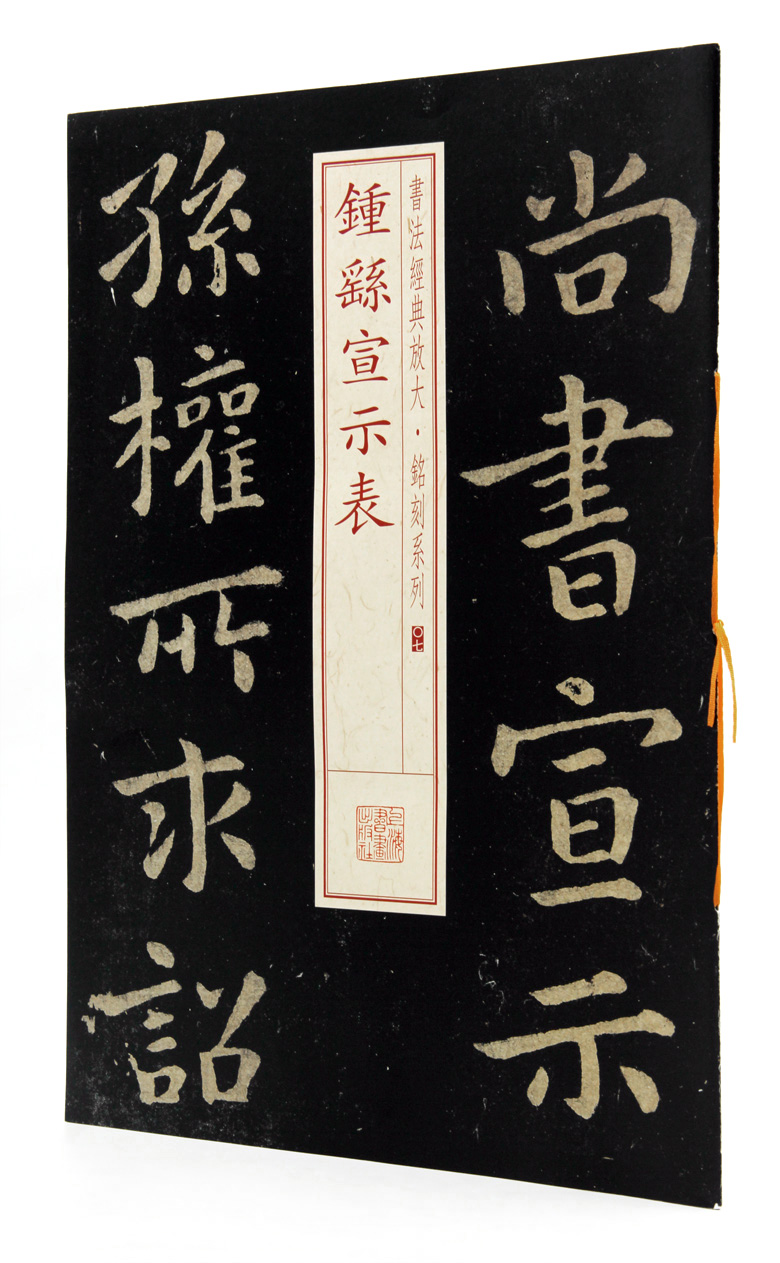 尚書宣示
孫權所求詔
書法經典放大·銘刻系列 〇七
鍾繇宣示表
上海書畫出版社